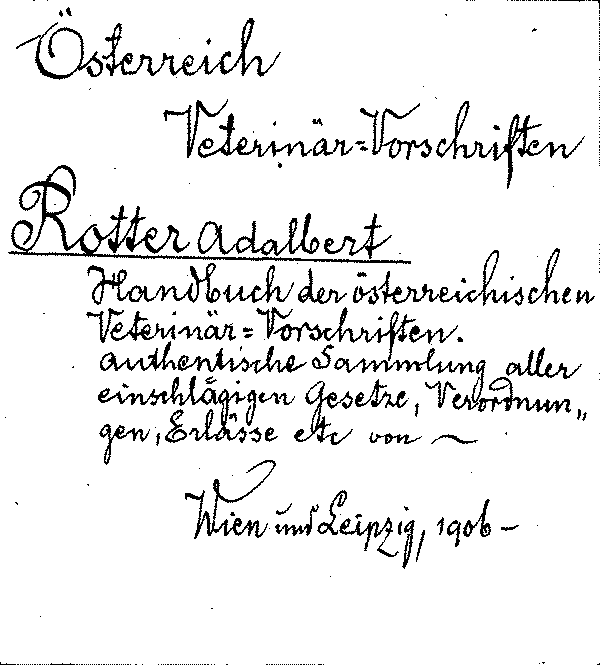 Österreich
Veterinär=Vorschriften
Rotter Adalbert
Handbuch der österreichischen
Veterinär=Vorschriften.
authentische Sammlung aller
einschlägigen Gesetze, Verordnun„
gen, Erlässe etc von ~
Wien und Leipzig, 1906 –